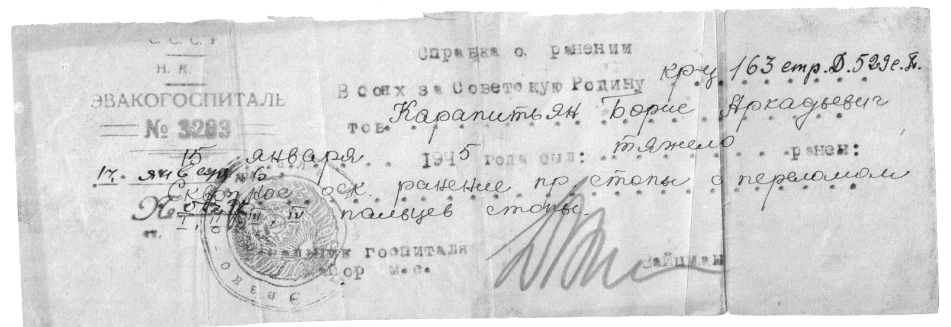 С С С Р
Н. К.
ЭВАКОГОСПИТАЛЬ
№ 3293
17. янв
Справка о ранении
В боях за Советскую Родину кр-ц 163 стр. Д. 529 с. п.
тов. Карапитьян Борис Аркадьевич
15 января 1945 года был: тяжело ранен:
оск. ранение пр стопы с переломом
III IV пальцев стопы.
Начальник госпиталя
майор м.с. Вайцман